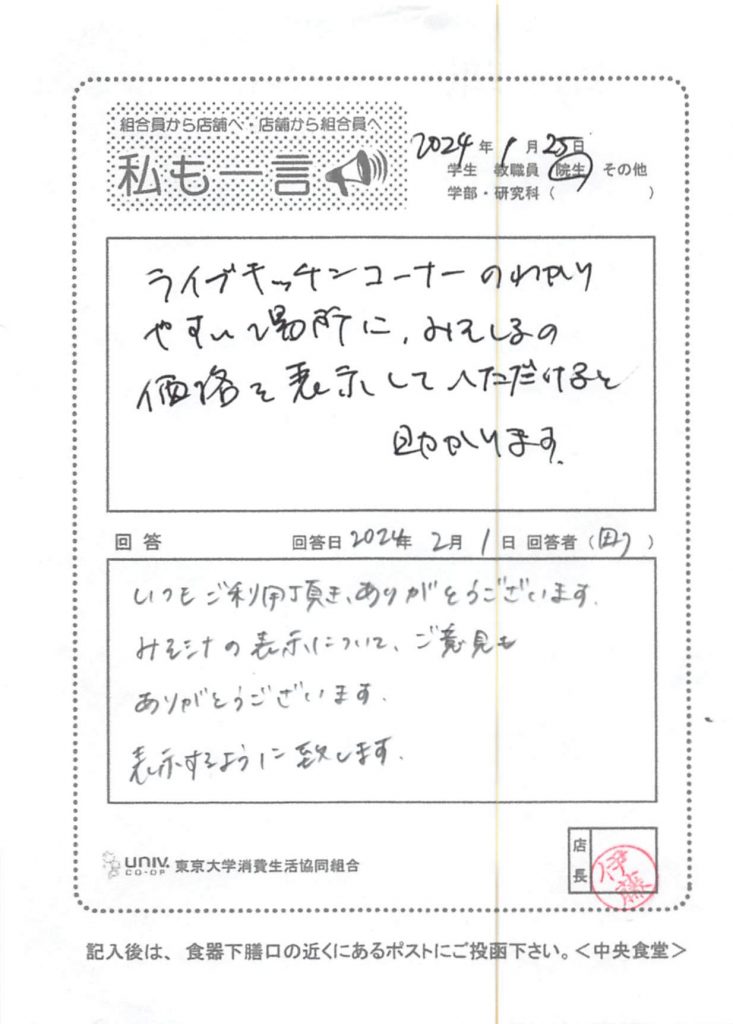 組合員から店舗へ・店舗から組合員へ
私も一言
2024年1月25日
学生 教職員 院生 その他
学部・研究科( )
ライブキッチンコーナーのわかり
やすい場所に、みそしるの
価格を表示していただけると
助かります。
回答 回答日 2024年 2月 1日 回答者( )
いつもご利用頂き、ありがとうございます。
みそ汁の表示について、ご意見も
ありがとうございます。
表示するように致します。
UNIV. CO-OP 東京大学消費生活協同組合
店長 伊藤
記入後は、食器下膳口の近くにあるポストにご投函下さい。<中央食堂>